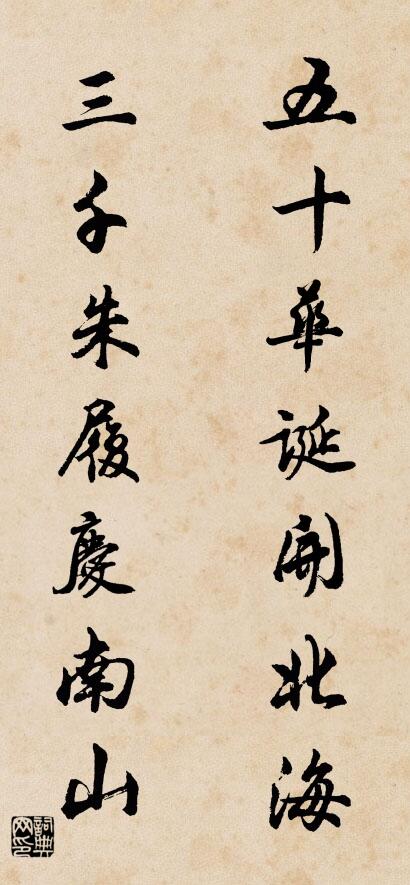 五十華誕開北海
三千朱履慶南山
詞典网印